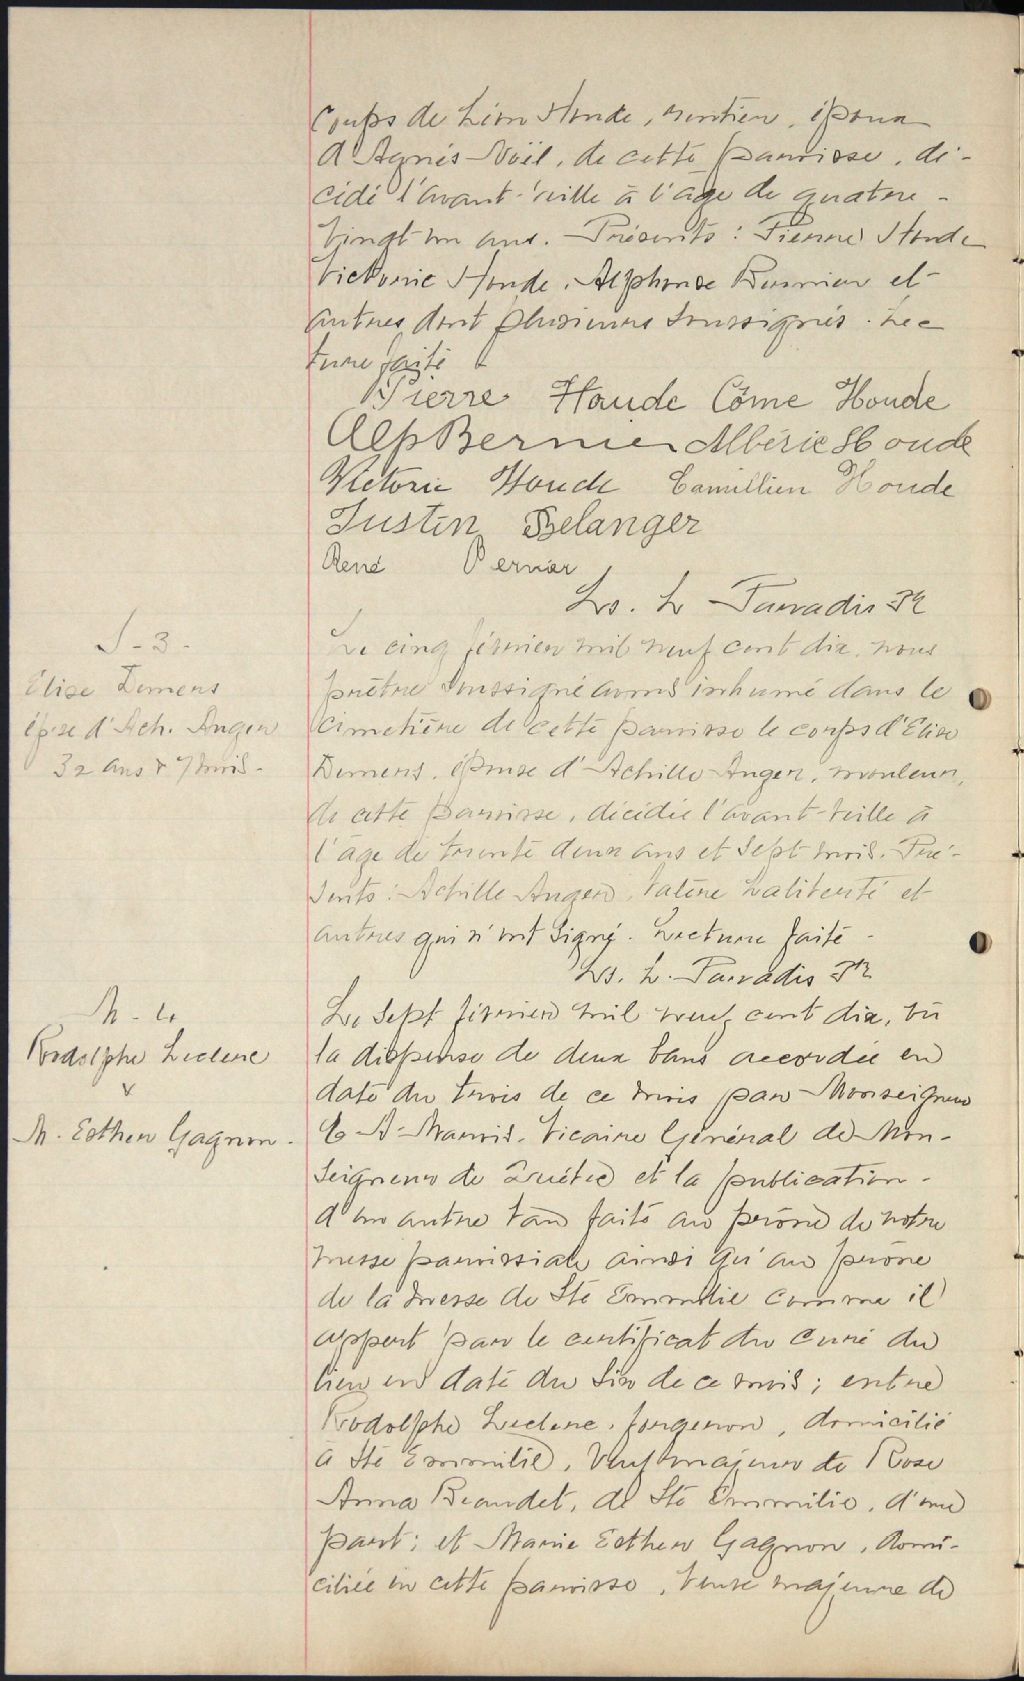 corps de Léon Houde, rentier, époux
d'Agnès Noël, de cette paroisse, dé-
cédé l'avant-veille à l'âge de quatre-
vingt un ans. Présents: Pierre Houde
Victorie Houde, Alphonse Bernier et
autres dont plusieurs soussignés. Lec-
ture faite
Pierre Houde Côme Houde
Alp Bernier Albéric Houde
Victorie Houde Camillien Houde
Justin Belanger
René Bernier
Ls. L. Paradis Ptr
S-3-
Elise Demers
épse d'Ach. Auger
32 ans & 7 mois-
Le cinq février mil neuf cent dix, nous
prêtre soussigné avons inhumé dans le
cimetière de cette paroisse le corps d'Elise
Demers, épouse d'Achille Auger, mouleur,
de cette paroisse, décédée l'avant-veille à
l'âge de trente deux ans et sept mois. Pré-
sents: Achille Auger, Valère Laliberté et
autres qui n'ont signé. Lecture faite-
Ls. L. Paradis Ptr
M-4
Rodolphe Leclerc
&
M. Esther Gagnon-
Le sept février mil neuf cent dix, vu
la dispense de deux bans accordée en
date du trois de ce mois par Monseigneur
C A Marois, Vicaire Général de Mon-
seigneur de Québec et la publication-
d'un autre ban faite au prône de notre
messe paroissiale ainsi qu'au prône
de la messe de Ste Emmélie comme il
appert par le certificat du curé du
lieu en date du six de ce mois; entre
Rodolphe Leclerc, forgeron, domicilié
à Ste Emmélie, veuf majeur de Rose
Anna Beaudet, de Ste Emmélie, d'une
part; et Marie Esther Gagnon, domi-
ciliée en cette paroisse, veuve majeure de